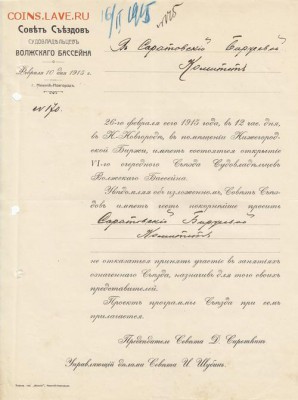 COINS.LAVE.RU
Совѣтъ Съѣздовъ
СУДОВЛАДѢЛЬЦЕВЪ
ВОЛЖСКАГО БАССЕЙНА
Февраля 10 дня 1915 г.
г. Нижній-Новгородъ.
№ 170.
16/II 1915
Въ Саратовскій Биржевой
Комитетъ
26-го февраля сего 1915 года, въ 12 час. дня,
въ Н.-Новгородѣ, въ помѣщеніи Нижегородской
Биржи, имѣетъ состояться открытіе
VI-го очередного Съѣзда Судовладѣльцевъ
Волжскаго Бассейна.
Увѣдомляя объ изложенномъ, Совѣтъ Съѣз-
довъ имѣетъ честь покорнѣйше просить
Саратовскій Биржевой
Комитетъ
не отказаться принять участіе въ занятіяхъ
означеннаго Съѣзда, назначивъ для того своихъ
представителей.
Проектъ программы Съѣзда при семъ
прилагается.
Предсѣдатель Совѣта Д. Сироткинъ.
Управляющій дѣлами Совѣта И. Шубинъ.